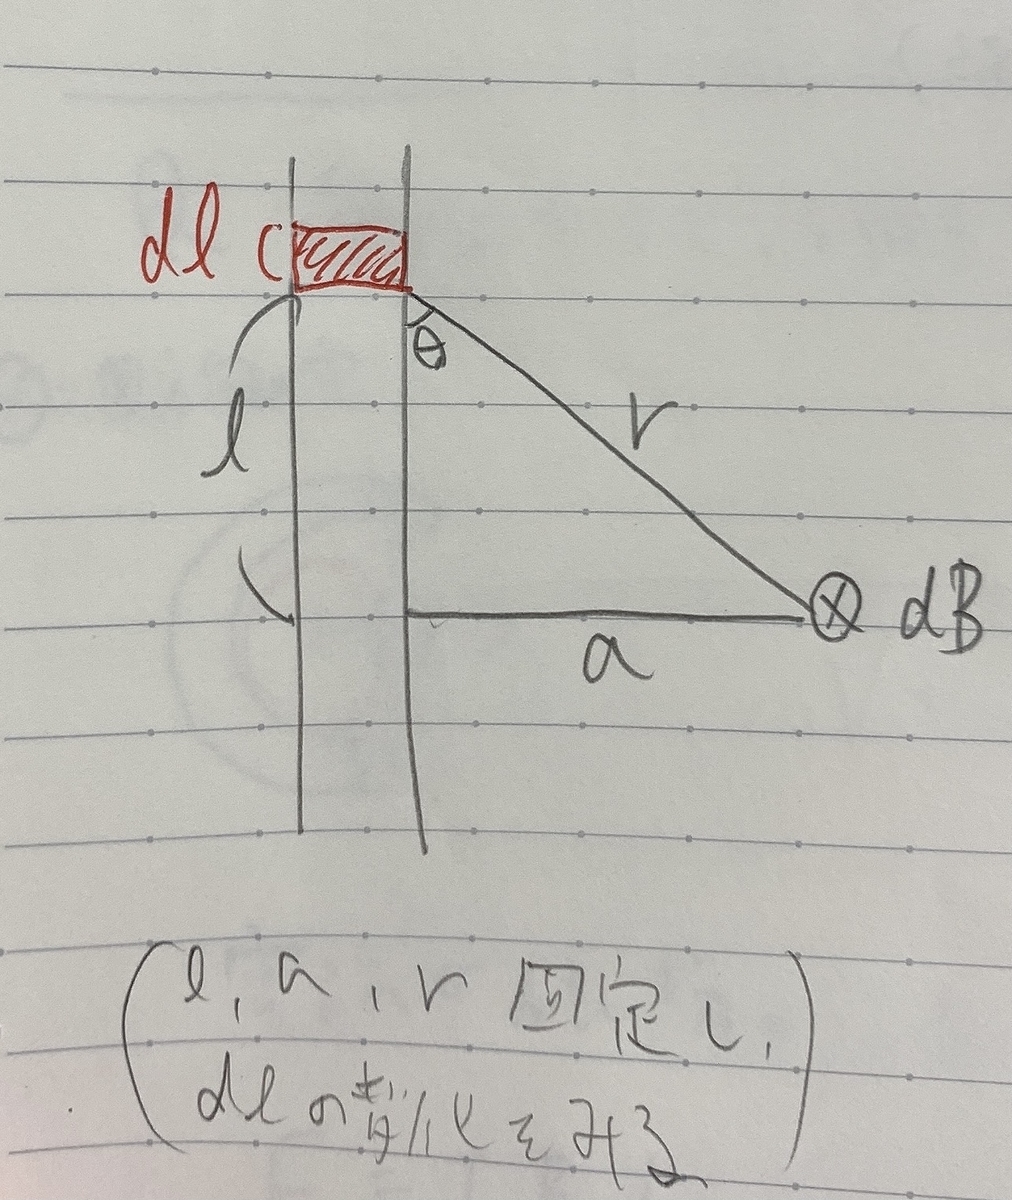 dl
θ
l
r
dB
a
(l, a, r 固定し,
dlの変化をみる)